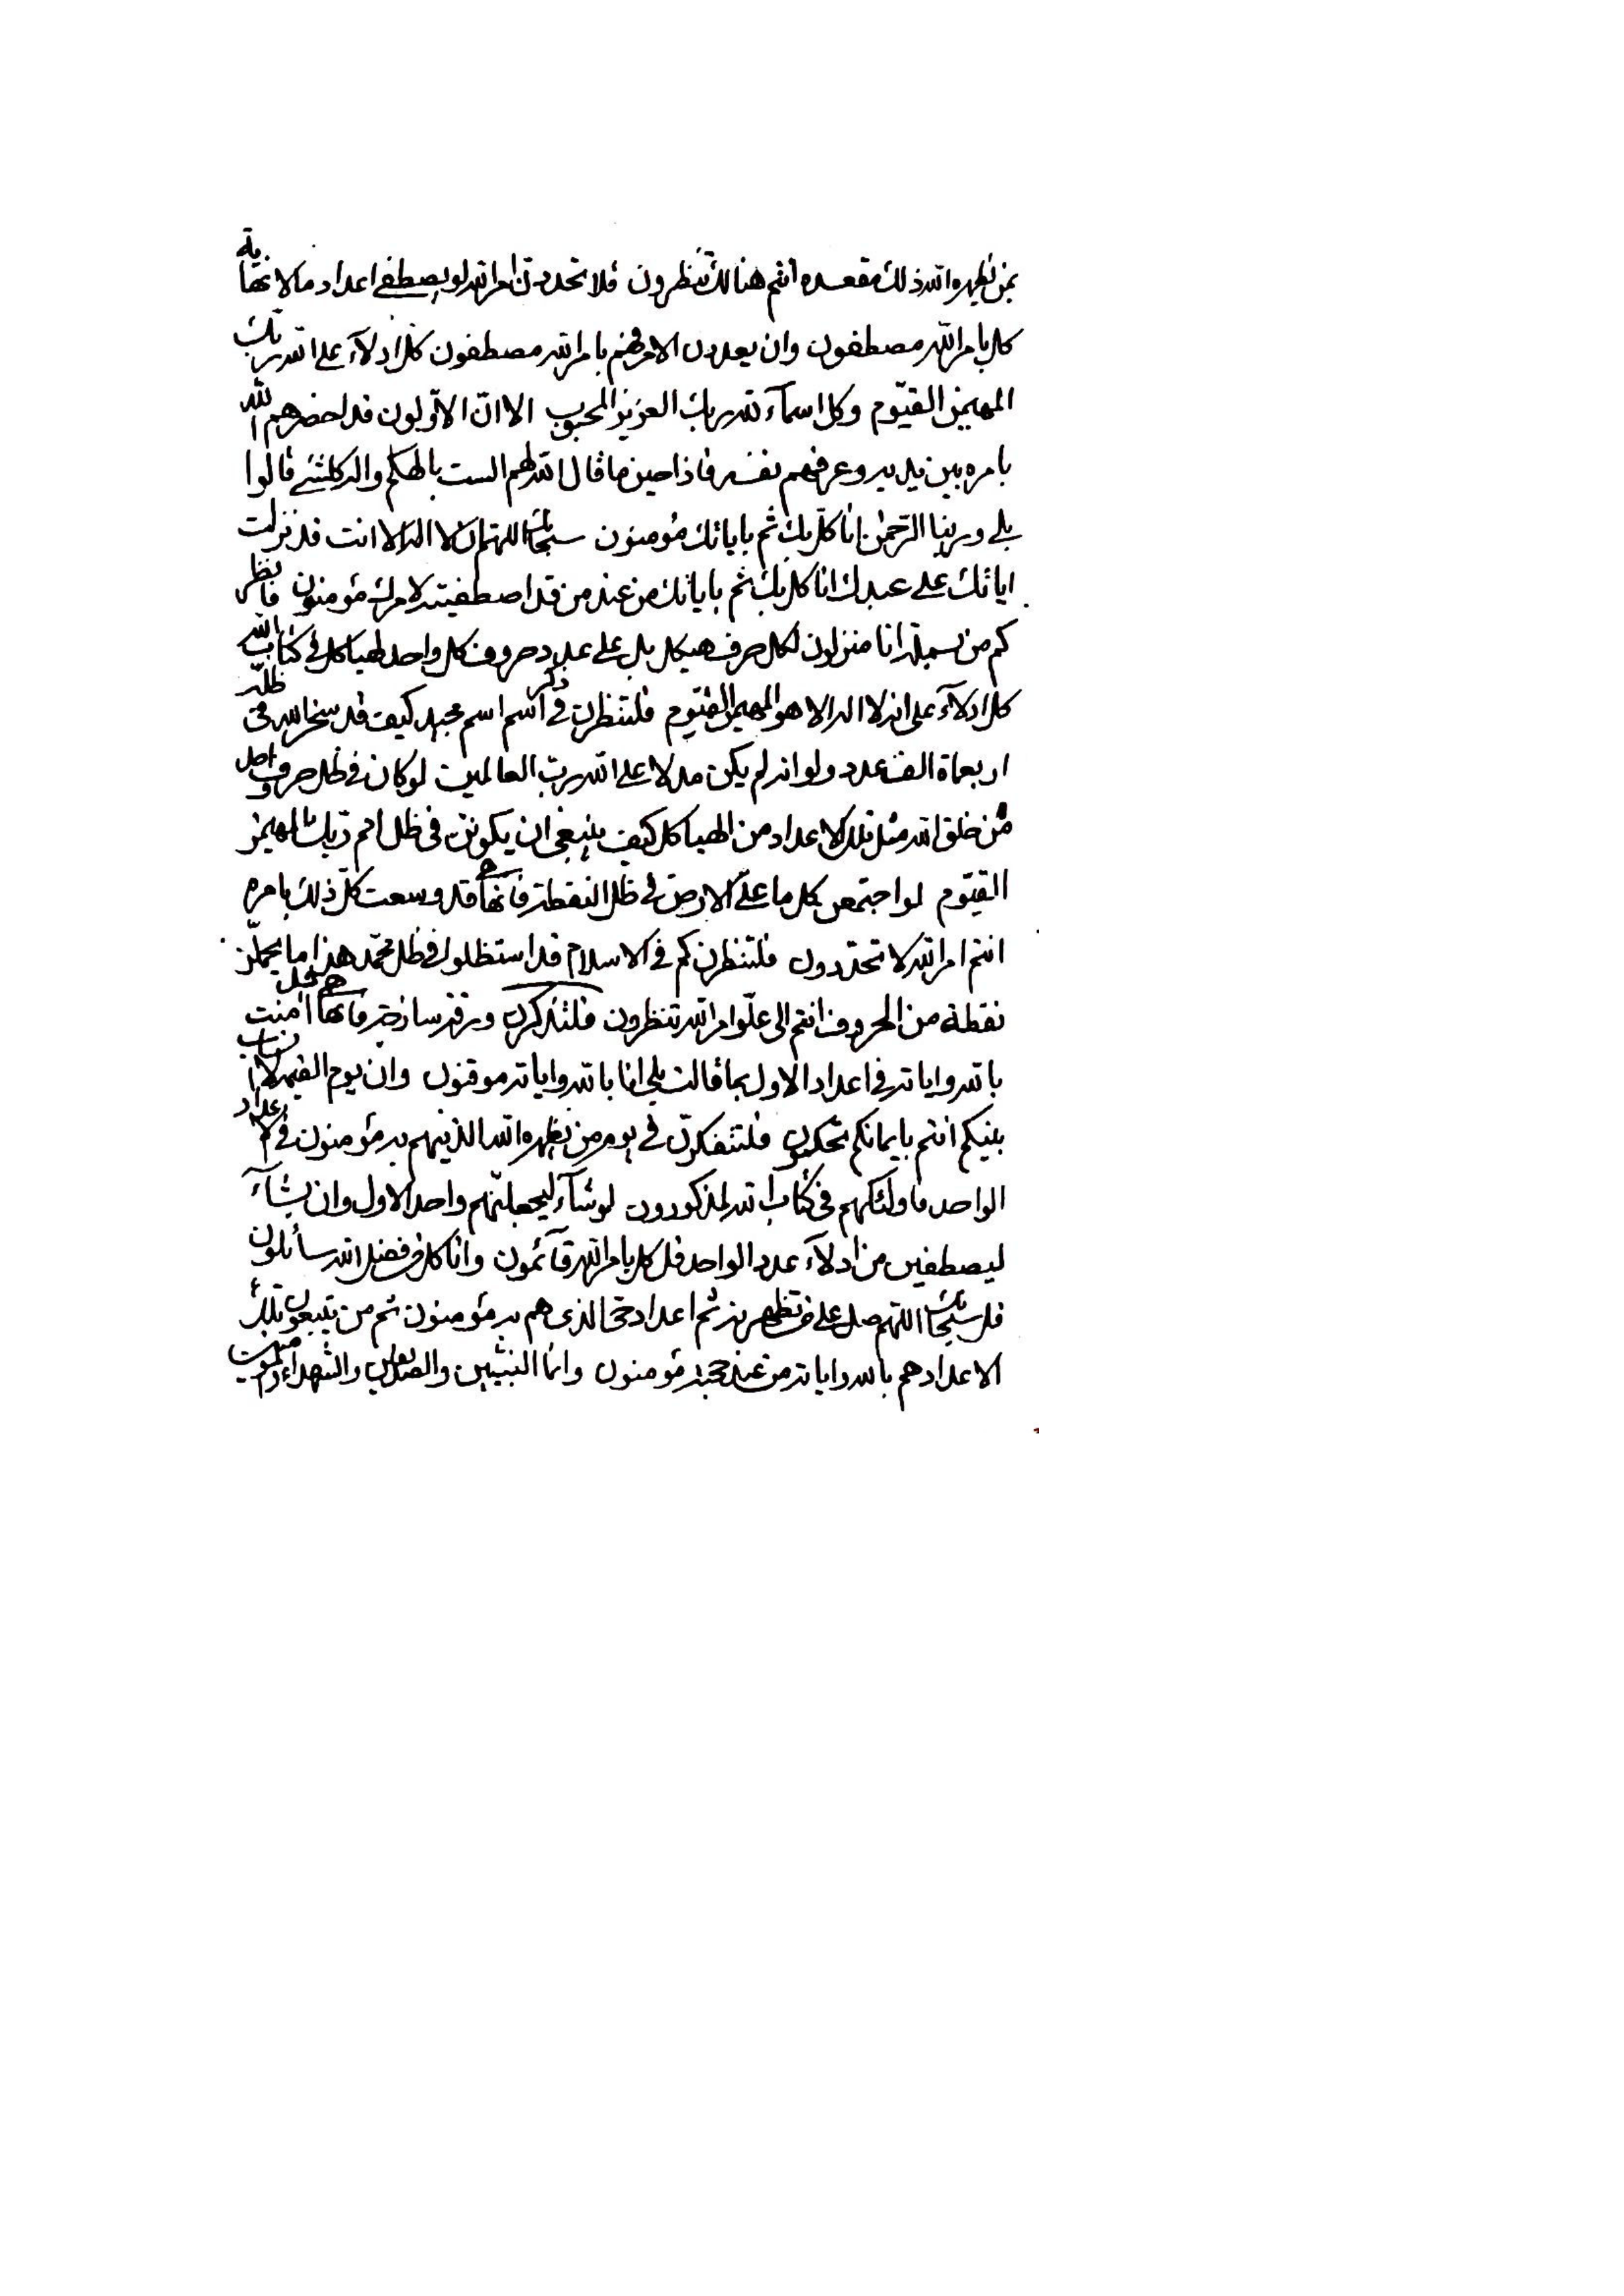 بمن يظهره الله ذلك مقعده انتم هنالك تنظرون فلا تحددن امر الله لو يصطفى اعداد ما لا نهاية
كل بامر الله مصطفون وان يعددن الامر فهم بامر الله مصطفون كل ادلآء على الله ربك
المهيمن القيّوم وكل اسمآء لله ربك العزيز المحبوب الا انّ الاوّلون قد احضرهم الله
بامره بين يديه وعرفهم نفسه فاذا حين ما قال الله لهم الست بالهكم واله كلشئ قالوا
بلى وربنا الرّحمن انا كلّ بك ثم باياتك مؤمنون سبحانك اللهم ان لا اله الا انت قد نزلت
اياتك على عبدك انا كل بك ثم باياتك من عند من قد اصطفيته لامرك مؤمنون فانظر
كم من بسملة انا منزلون لكل حرف هيكل بل على عدد حروف كل واحد لهياكل فى كتاب الله
كل ادلآء على انه لا اله الا هو المهيمن القيّوم فلتنظرن فى ذكر اسم اسم مجيد كيف قد سخر الله فى ظله
اربعمأة الف عدد ولو انه لم يكن مدلا على الله رب العالمين لو كان فى ظل حروف واحد
من خلق الله مثل تلك الاعداد من الهياكل كيف ينبغى ان يكونن فى ظل امر ربك المهيمن
القيّوم لو اجتمعن كل ما على الارض فى ظل النقطة فانها قد وسعت كلّ ذلك بامره
انتم امر الله لا تحدّدون فلتنظرن كم فى الاسلام قد استظلوا فى ظل محمّد هذا ما يحملن
نقطة من الحروف انتم الى علوّ امر الله تنظرون فلتذكرن ورقة فانها امنت
بالله واياته فى اعداد الاول بما قالت بلى انا بالله واياته موقنون وان يوم القيمة لا انساب
بينكم انتم بايمانكم تحكمون فلتتفكرنّ فى يوم من يظهره الله الذينهم به مؤمنون فى الاعداد
الواحد فاولئكهم فى كتاب الله لمذكورون لو شآء ليجعلنّهم واحد الاول وان يشآء
ليصطفين من ادلآء عدد الواحد قل كل بامر الله قآئمون وانا كل من فضل الله سائلون
قل سبحانك اللهم صل على من تظهرنه ثم اعداد حى الذى هم به مؤمنون ثم من يتبعون تلك
الاعداد هم بالله واياته من عند حجته مؤمنون وانما النبيين والصديقين والشهداء